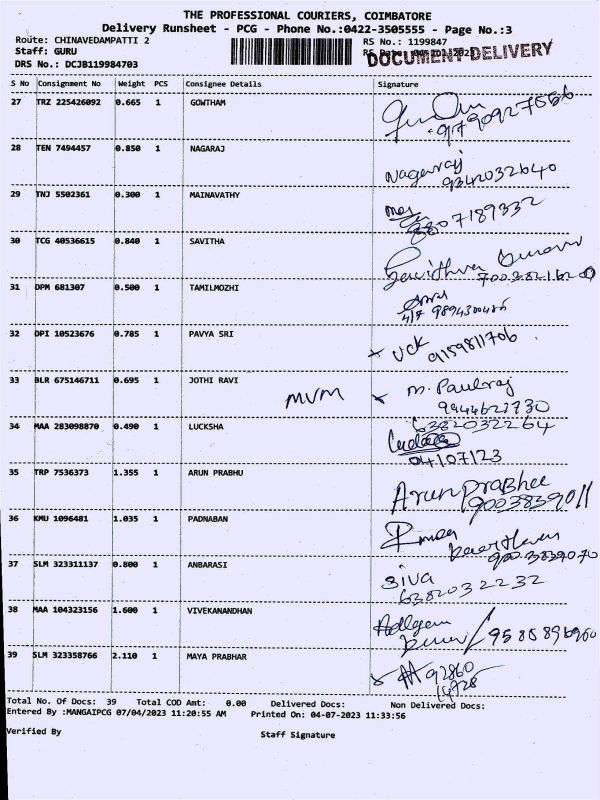 THE PROFESSIONAL COURIERS, COIMBATORE
Delivery Runsheet - PCG - Phone No.:0422-3505555 - Page No.:3
Route: CHINAVEDAMPATTI 2
RS No.: 1199847
Staff: GURU
RS Date: 04-Jul-2023
DOCUMENT DELIVERY
DRS No.: DCJB119984703
S No Consignment No Weight PCS Consignee Details Signature
27 TRZ 225426092 0.665 1 GOWTHAM
91790927566
28 TEN 7494457 0.850 1 NAGARAJ
Nagaraj
9342032640
29 TNJ 5502361 0.300 1 MAINAVATHY
9807189332
30 TCG 40536615 0.840 1 SAVITHA
31 DPM 681307 0.500 1 TAMILMOZHI
32 OPI 10523676 0.785 1 PAVYA SRI
VCK 9159811706
33 BLR 675146711 0.695 1 JOTHI RAVI
MVM
M. Paulraj
9944621730
34 MAA 283098870 0.490 1 LUCKSHA
6382032264
04/07/23
35 TRP 7536373 1.355 1 ARUN PRABHU
Arun Prabhee
9003839011
36 KMU 1096481 1.035 1 PADNABAN
9003839070
37 SLM 323311137 0.800 1 ANBARASI
Siva
6382032232
38 MAA 104323156 1.600 1 VIVEKANANDHAN
39 SLM 323358766 2.110 1 MAYA PRABHAR
92860
14928
Total No. Of Docs: 39 Total COD Amt: 0.00 Delivered Docs: Non Delivered Docs:
Entered By :MANGAIPCG 07/04/2023 11:20:55 AM Printed On: 04-07-2023 11:33:56
Verified By
Staff Signature